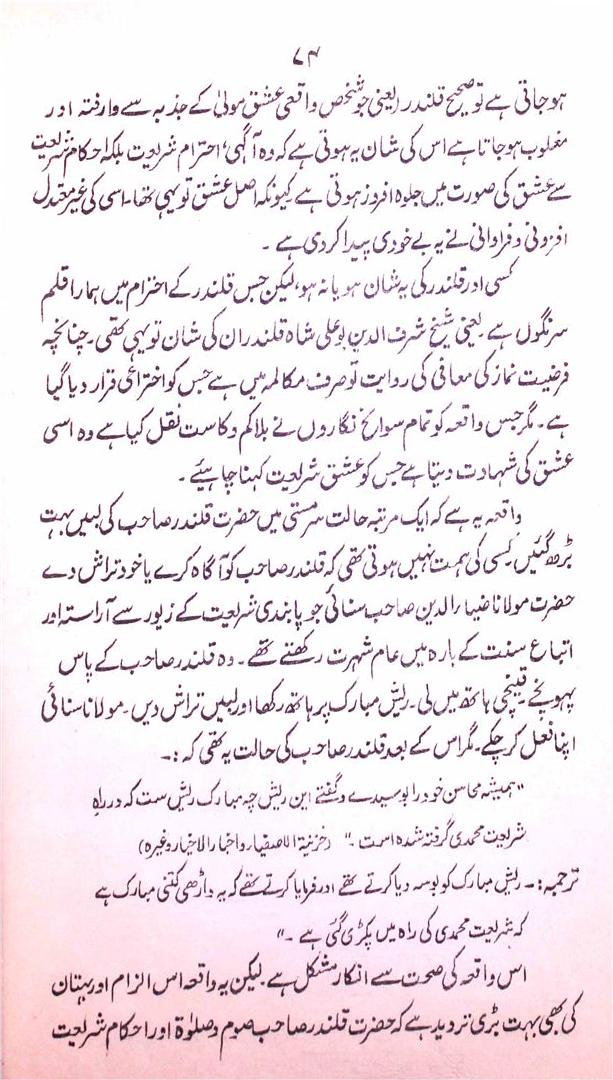 ۷۴
ہوجاتی ہے تو صحیح قلندر (یعنی جو شخص واقعی عشق مولیٰ کے جذبہ سے وارفتہ اور
مغلوب ہوجاتا ہے اس کی شان یہ ہوتی ہے کہ وہ آگہی، احترام شریعت بلکہ احکام شریعت
سے عشق کی صورت میں جلوہ افروز ہوتی ہے کیونکہ اصل عشق تو یہی تھا۔ اسی کی غیر معتدل
افزونی و فراوانی نے یہ بے خودی پیدا کردی ہے ۔
کسی اور قلندر کی یہ شان ہو یا نہ ہو، لیکن جس قلندر کے احترام میں ہمارا قلم
سرنگوں ہے ۔ یعنی شیخ شرف الدین بو علی شاہ قلندر ان کی شان تو یہی تھی ۔ چنانچہ
فرضیت نماز کی معافی کی روایت تو صرف مکالمہ میں ہے جس کو اختراعی قرار دیا گیا
ہے ۔ مگر جس واقعہ کو تمام سوانح نگاروں نے بلاکم وکاست نقل کیا ہے وہ اسی
عشق کی شہادت دیتا ہے جس کو عشق شریعت کہنا چاہیئے ۔
واقعہ یہ ہے کہ ایک مرتبہ حالت سرمستی میں حضرت قلندر صاحب کی لبیں بہت
بڑھ گئیں ۔ کسی کی ہمت نہیں ہوتی تھی کہ قلندر صاحب کو آگاہ کرے یا خود تراش دے
حضرت مولانا ضیاء الدین صاحب سنائی جو پابندی شریعت کے زیور سے آراستہ اور
اتباع سنت کے بارہ میں عام شہرت رکھتے تھے ۔ وہ قلندر صاحب کے پاس
پہونچے ۔ قینچی ہاتھ میں لی ۔ ریش مبارک پر ہاتھ رکھا اور لبیں تراش دیں ۔ مولانا سنائی
اپنا فعل کر چکے ۔ مگر اس کے بعد قلندر صاحب کی حالت یہ تھی کہ :۔
"ہمیشہ محاسن خود را بوسیدے وگفتے این ریش چہ مبارک ریش ست کہ در راہ
شریعت محمدی گرفتہ شدہ است ۔" (خزینۃ الاصفیاء واخبار الاخیار وغیرہ)
ترجمہ :۔ ریش مبارک کو بوسہ دیا کرتے تھے اور فرمایا کرتے تھے کہ یہ داڑھی کتنی مبارک ہے
کہ شریعت محمدی کی راہ میں پکڑی گئی ہے ۔"
اس واقعہ کی صحت سے انکار مشکل ہے لیکن یہ واقعہ اس الزام اور بہتان
کی بھی بہت بڑی تردید ہے کہ حضرت قلندر صاحب صوم وصلوٰۃ اور احکام شریعت